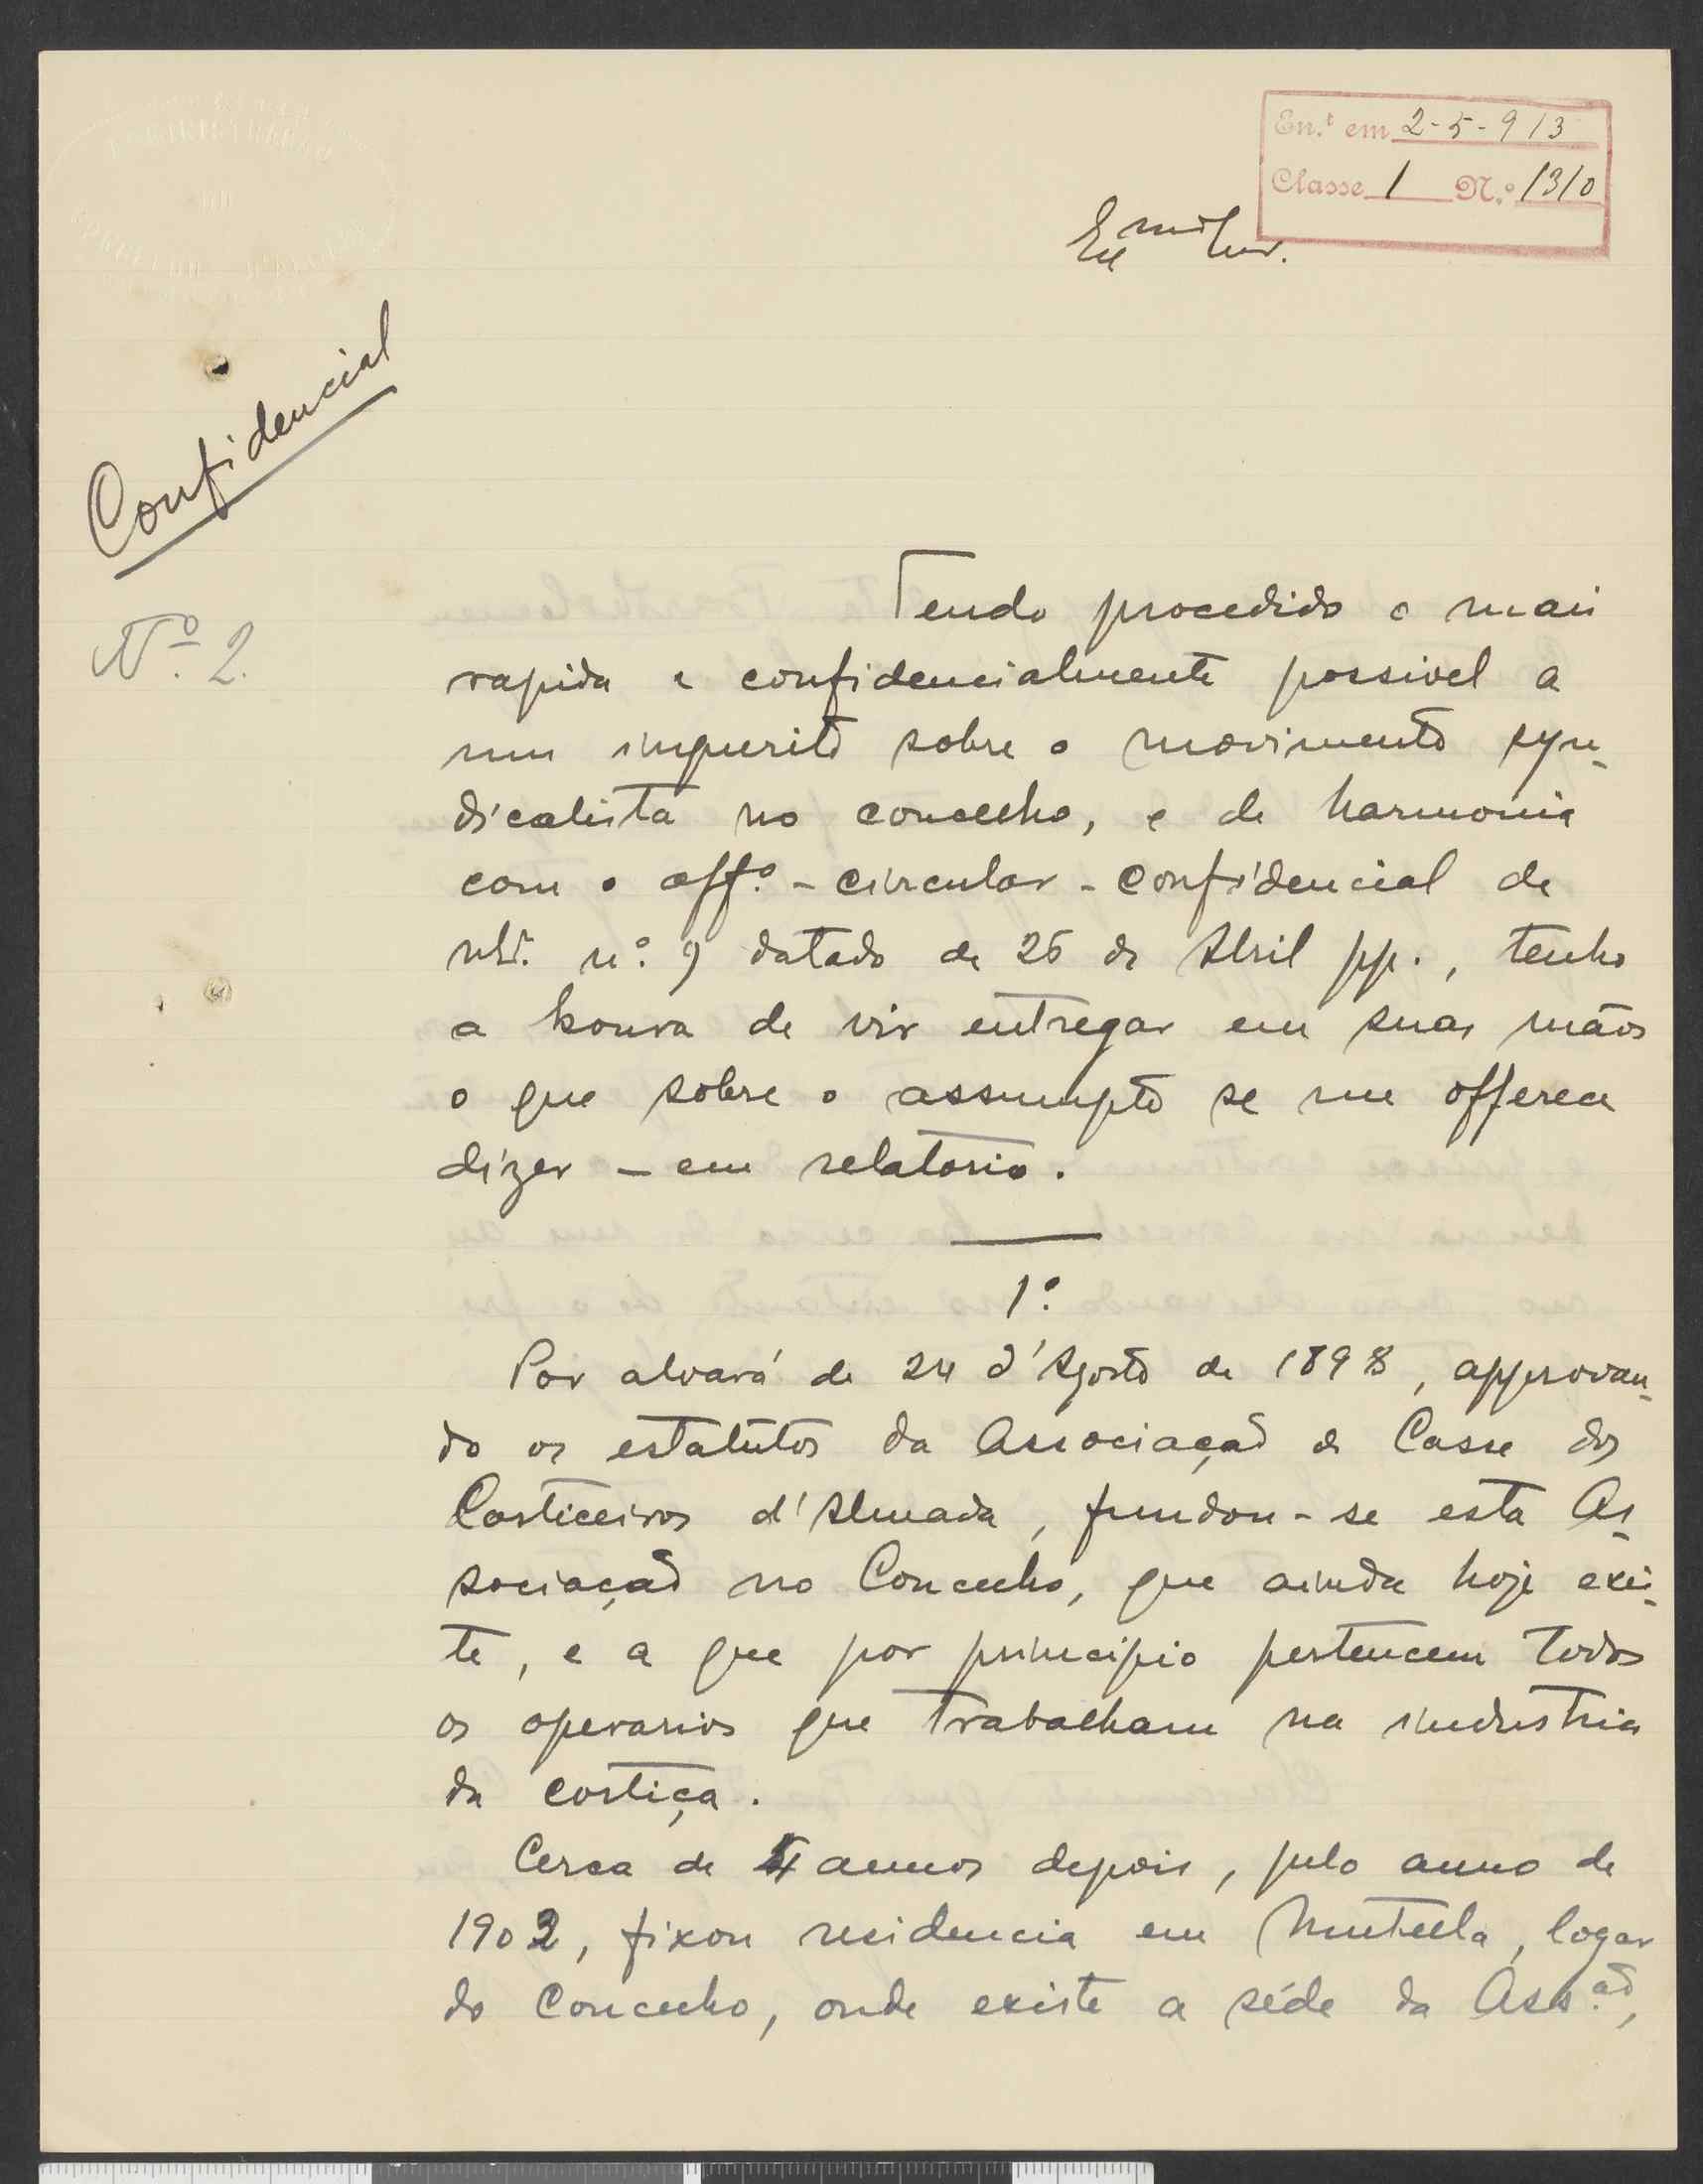 En.t em 2-5-913
Classe 1 N.o 1310
Exmo Snr.
Confidencial
Nº. 2.
Tendo procedido o mais
rapida e confidencialmente possivel a
um inquerito sobre o movimento syn-
dicalista no concelho, e de harmonia
com o offº. - circular - confidencial de
nº. 9 datado de 26 de Abril pp., tenho
a honra de vir entregar em suas mãos
o que sobre o assumpto se me offerece
dizer - em relatorio.
1º.
Por alvará de 24 d'Agosto de 1898, approvan-
do os estatutos da Associação de Casse dos
Corticeiros d'Almada, fundou-se esta As-
sociação no Concelho, que ainda hoje exis-
te, e a que por principio pertencem todos
os operarios que trabalham na industria
da cortiça.
Cerca de 4 annos depois, pelo anno de
1902, fixou residencia em Mutella, logar
do Concelho, onde existe a séde da Ass.ão,